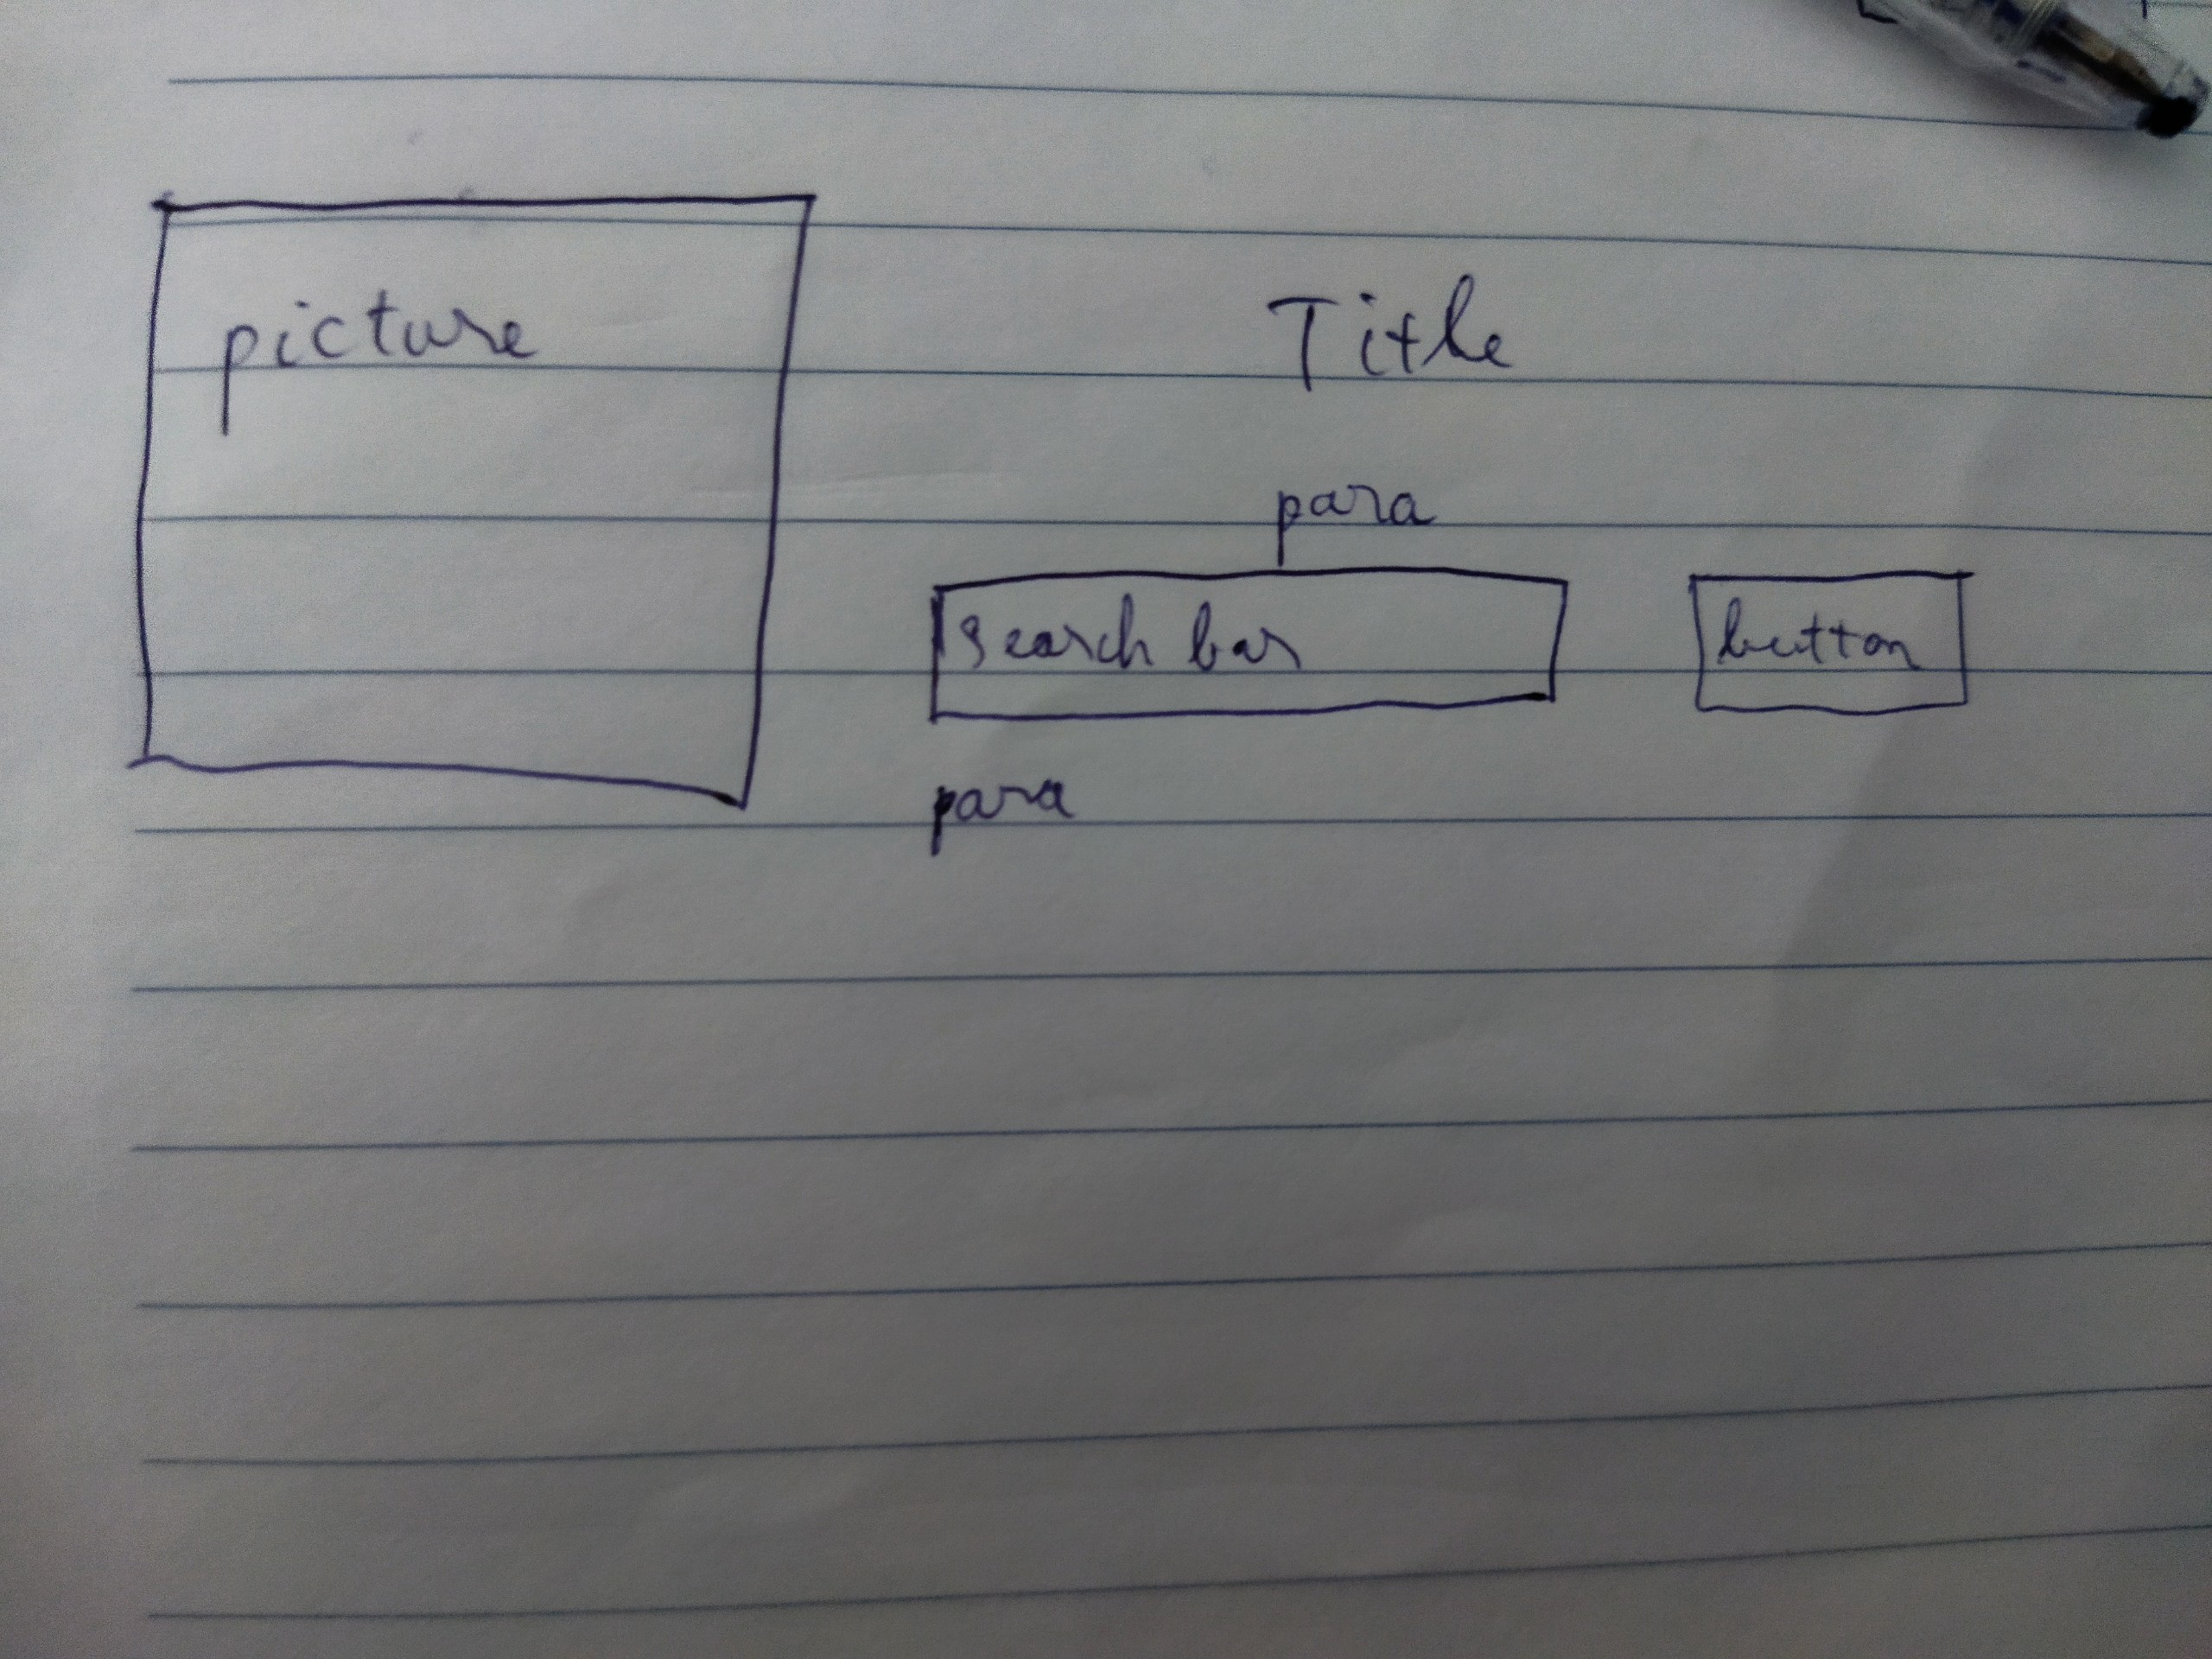 picture
Title
para
search bar
button
para